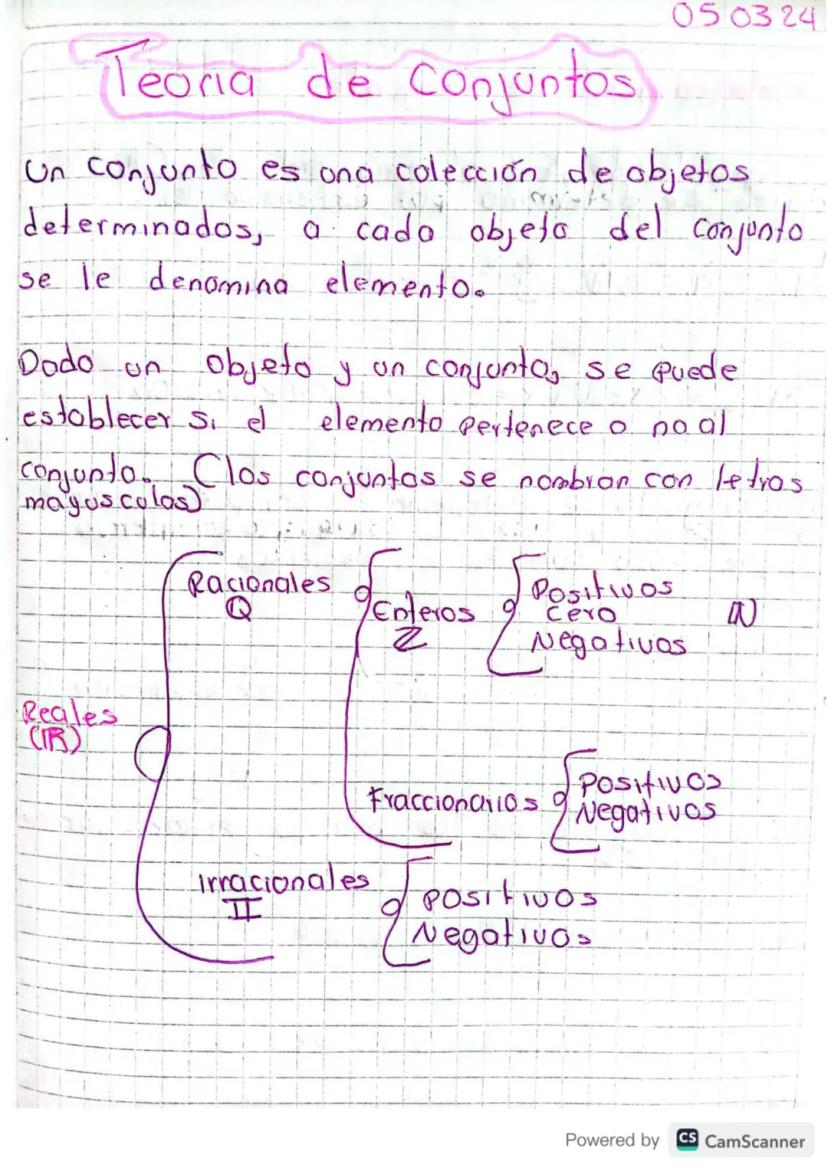 050324
Teoria de Conjuntos
Un conjunto es una colección de objetos
determinados, a cada objeto del conjunto
se le denomina elemento.
Dado un objeto y un conjunto, se puede
establecer si el elemento pertenece o no al
conjunto. (los conjuntos se nombran con letras
mayusculas)
Racionales
Q
Enteros
Z
Positivos
Cero
Negativos
ℕ
Reales
(ℝ)
Fraccionarios
Positivos
Negativos
Irracionales
II
Positivos
Negativos
Powered by CS CamScanner